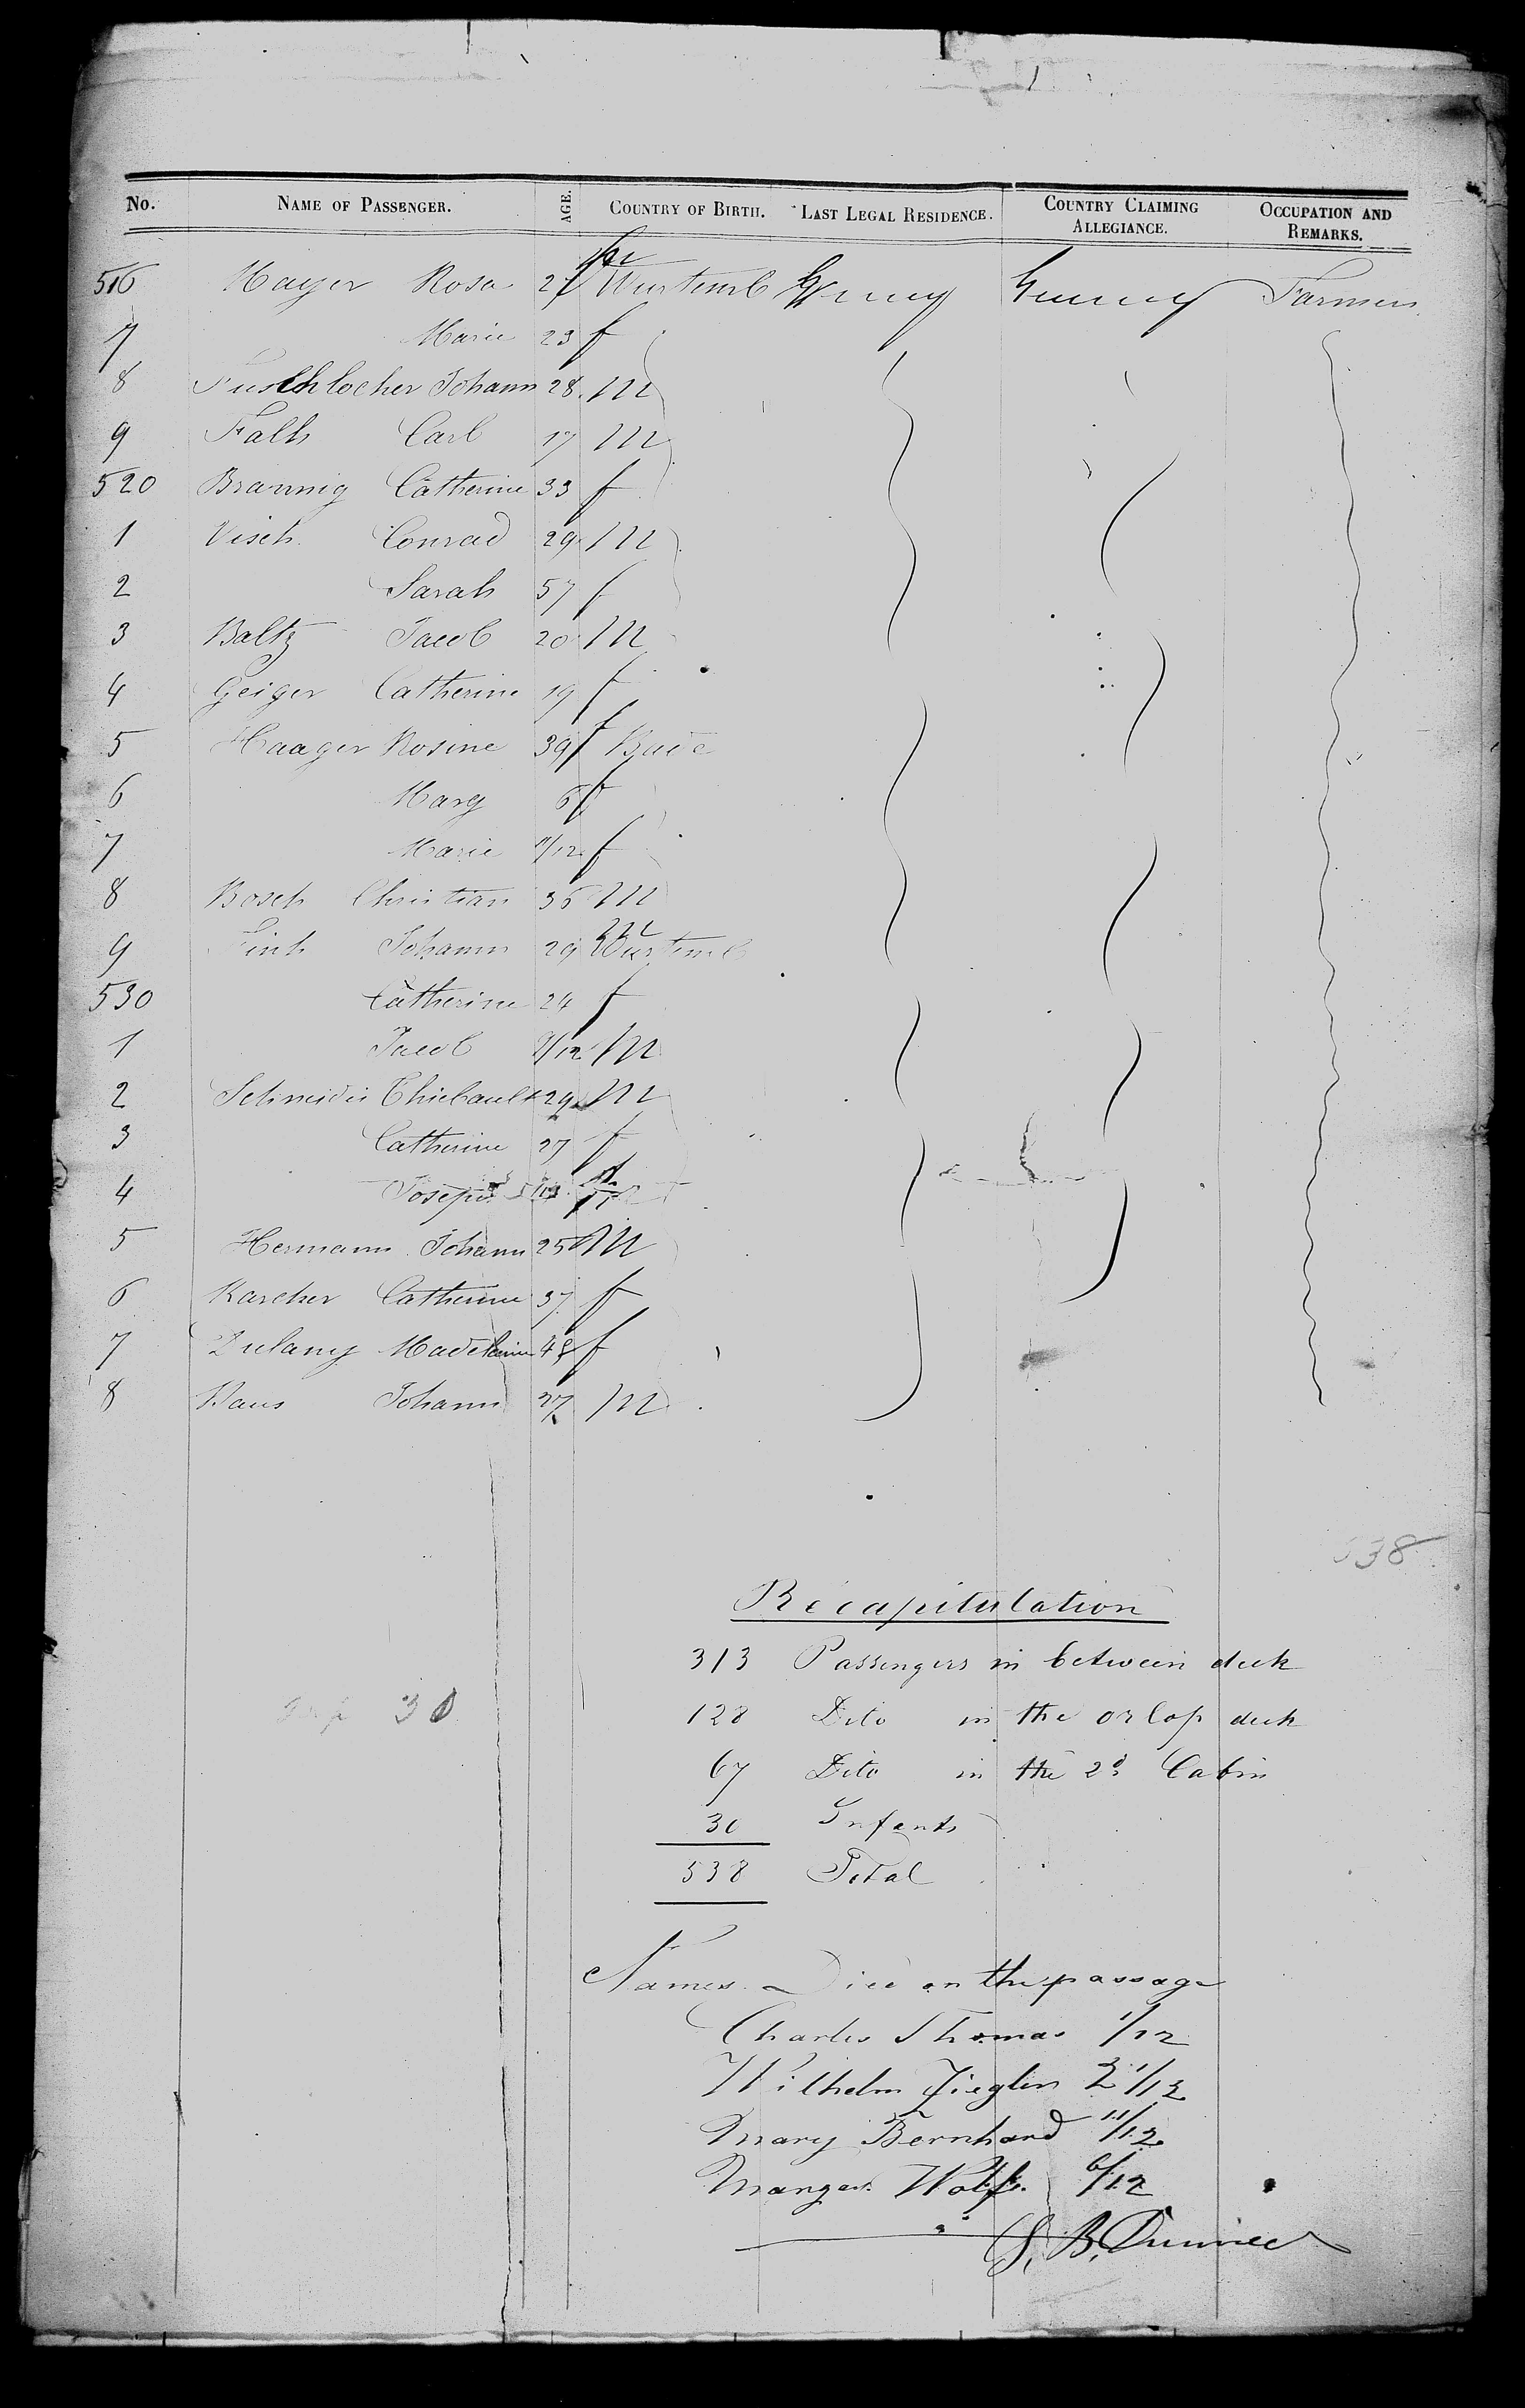 No. NAME OF PASSENGER. AGE. COUNTRY OF BIRTH. LAST LEGAL RESIDENCE. COUNTRY CLAIMING ALLEGIANCE. OCCUPATION AND REMARKS.
516 Mayer Rosa 27 f Wurtemb Germany Germany Farmers
7 Marie 23 f
8 Fuschlocher Johann 28 m
9 Falk Carl 17 m
520 Braunig Catherine 33 f
1 Visch Conrad 29 m
2 Sarah 57 f
3 Baltz Jacob 20 m
4 Geiger Catherine 19 f
5 Haager Rosine 39 f Bade
6 Marg 6 f
7 Marie 11/12 f
8 Bosch Christian 36 m
9 Fink Johann 29 m Wurtemb
530 Catherine 24 f
1 Jacob 9/12 m
2 Schneider Thiebault 29 m
3 Catherine 27 f
4 Joseph
5 Hermann Johann 25 m
6 Karcher Catherine 37 f
7 Dulany Madelaine 48 f
8 Johann 27 m
538
Recapitulation
313 Passengers in between deck
128 Dito in the orlop deck
30
67 Dito in the 2d Cabin
30 Infants
538 Total
Names Died on the passage
Charles Thomas 1/12
Wilhelm Zieglin 2 1/12
Mary Bernhard 11/12
Margar. Wolf. 6/12